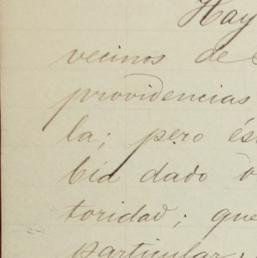 Hay
vecinos de
providencias
la; pero és
bía dado
toridad; que
particular;